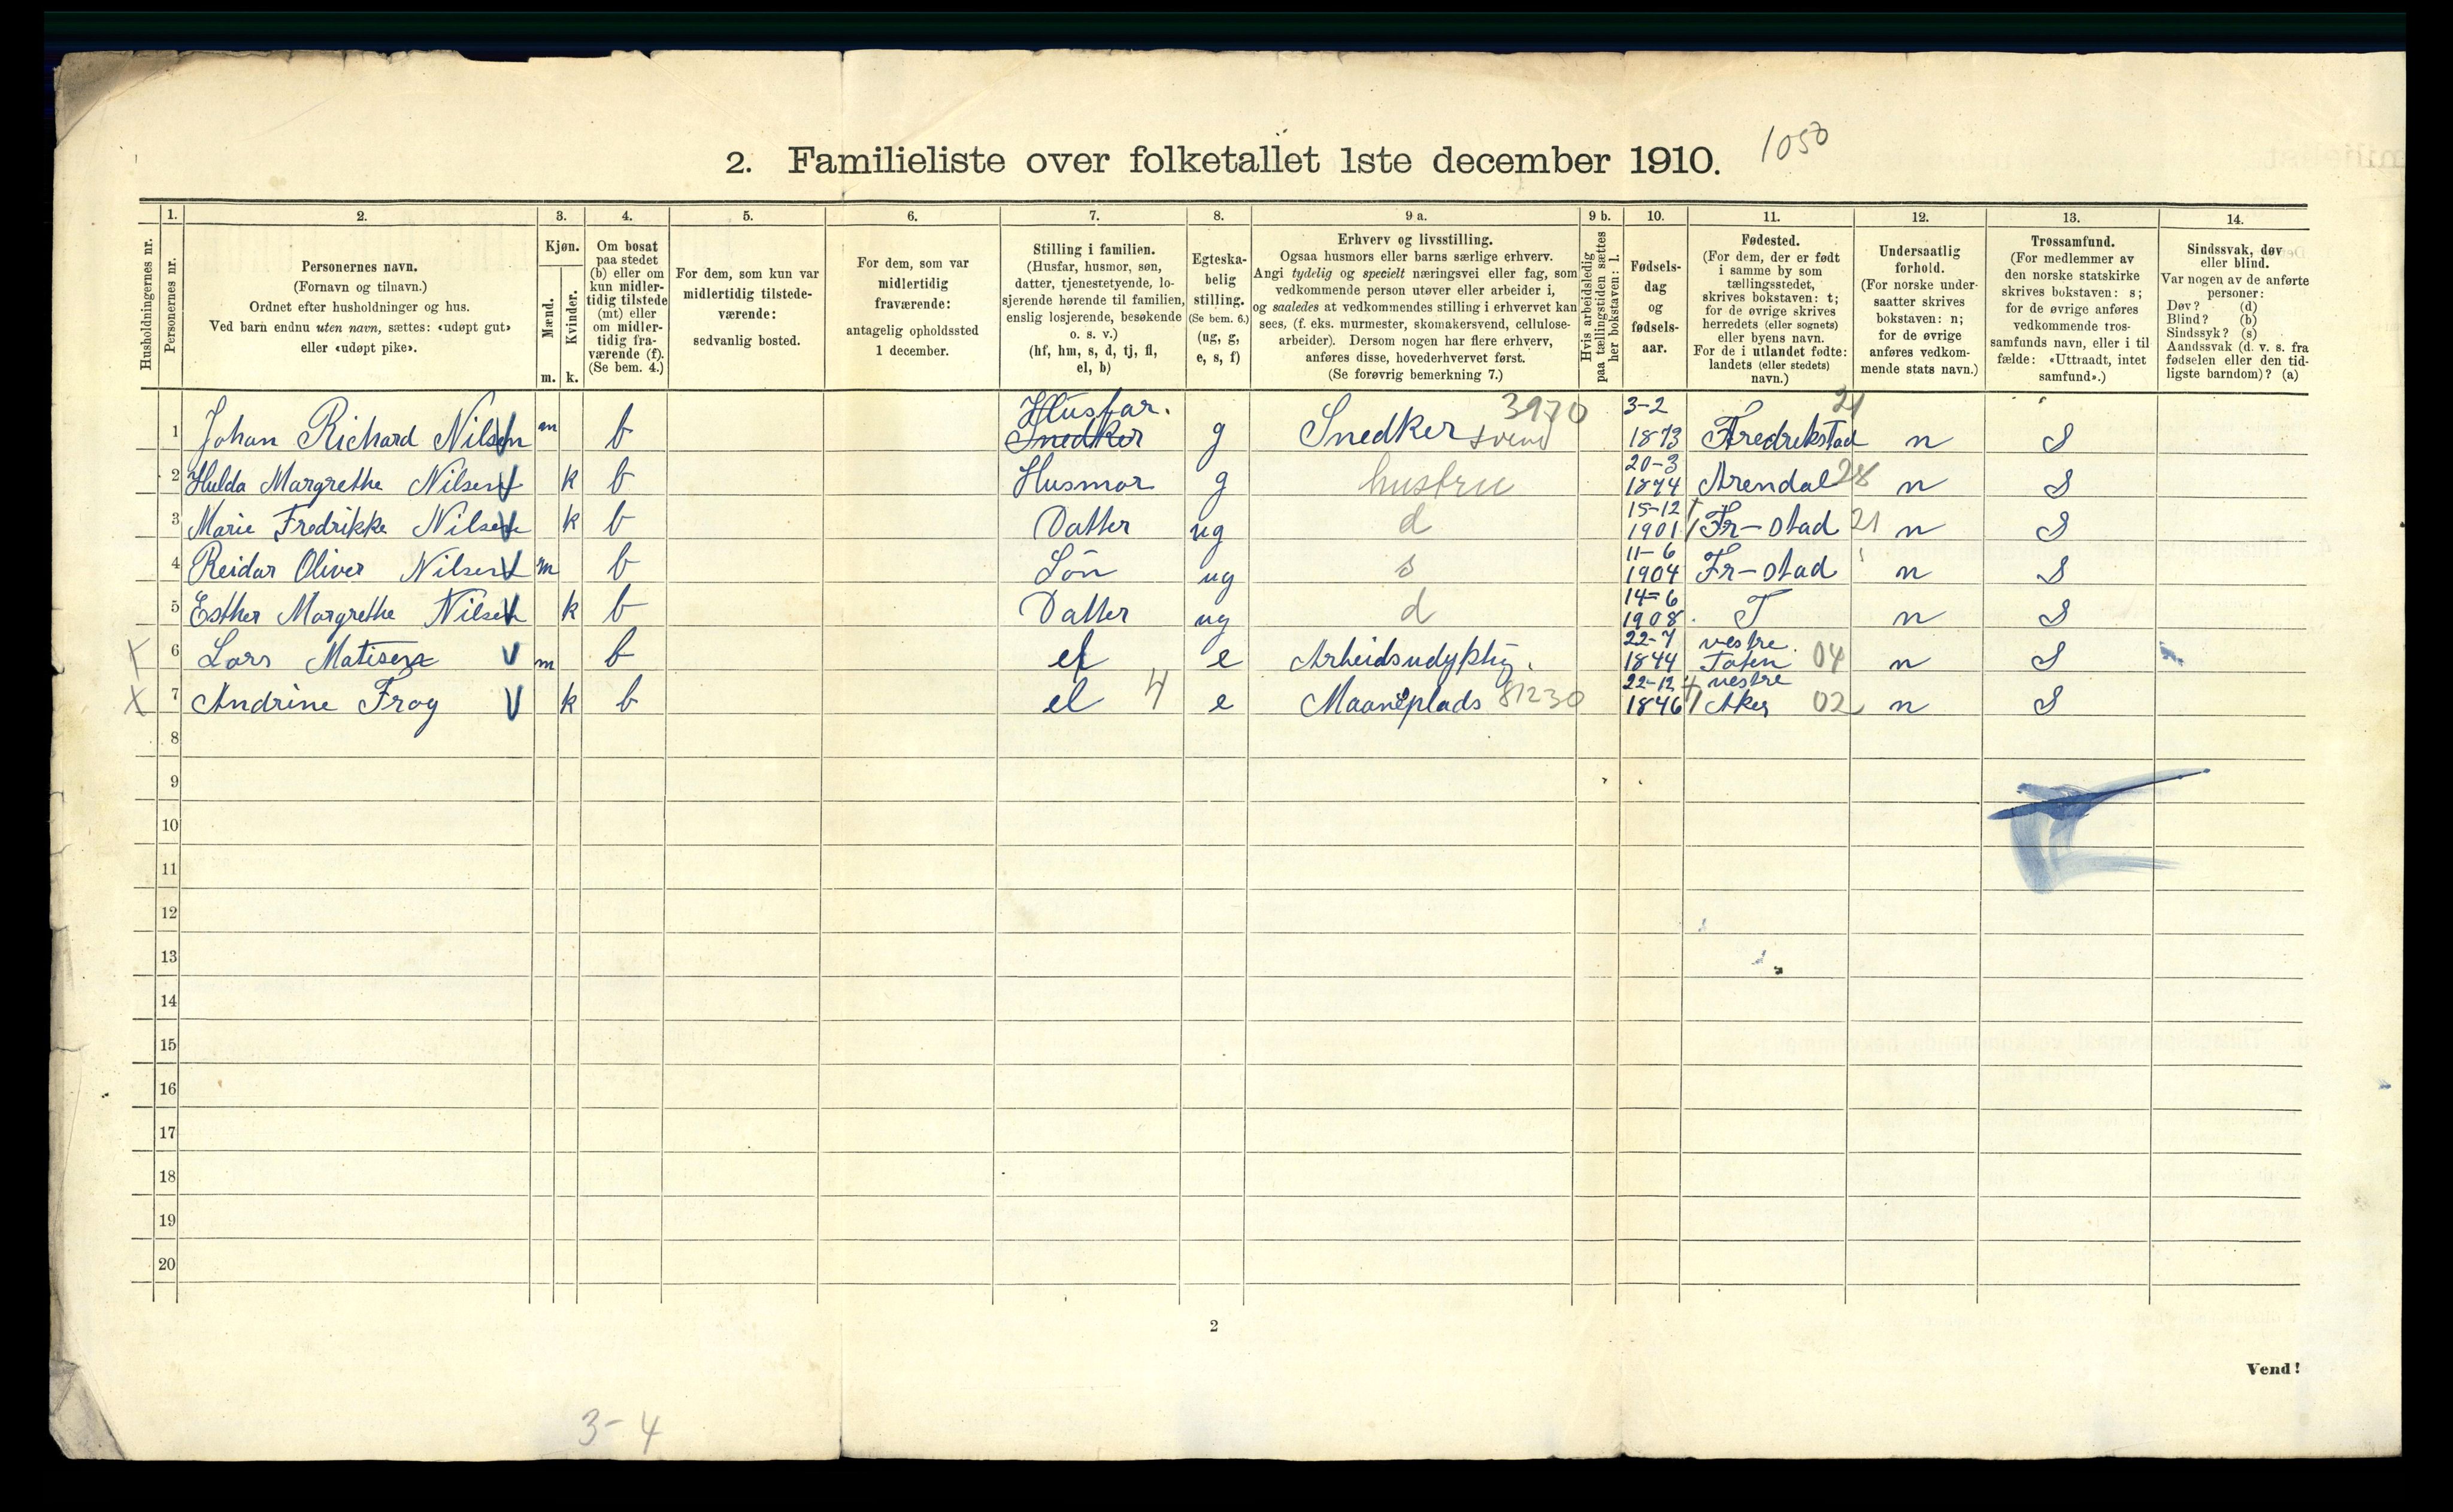 2. Familieliste over folketallet 1ste december 1910. 1050
Husholdningernes nr.
1.
Personernes nr.
2.
Personernes navn.
(Fornavn og tilnavn.)
Ordnet efter husholdninger og hus.
Ved barn endnu uten navn, sættes: «udøpt gut»
eller «udøpt pike».
3.
Kjøn.
Mænd.
Kvinder.
m. k.
4.
Om bosat
paa stedet
(b) eller om
kun midler-
tidig tilstede
(mt) eller
om midler-
tidig fra-
værende (f).
(Se bem. 4.)
5.
For dem, som kun var
midlertidig tilstede-
værende:
sedvanlig bosted.
6.
For dem, som var
midlertidig
fraværende:
antagelig opholdssted
1 december.
7.
Stilling i familien.
(Husfar, husmor, søn,
datter, tjenestetyende, lo-
sjerende hørende til familien,
enslig losjerende, besøkende
o. s. v.)
(hf, hm, s, d, tj, fl,
el, b)
8.
Egteska-
belig
stilling.
(Se bem. 6.)
(ug, g,
e, s, f)
9 a.
Erhverv og livsstilling.
Ogsaa husmors eller barns særlige erhverv.
Angi tydelig og specielt næringsvei eller fag, som
vedkommende person utøver eller arbeider i,
og saaledes at vedkommendes stilling i erhvervet kan
sees, (f. eks. murmester, skomakersvend, cellulose-
arbeider). Dersom nogen har flere erhverv,
anføres disse, hovederhvervet først.
(Se forøvrig bemerkning 7.)
9 b.
Hvis arbeidsledig
paa tællingstiden sættes
her bokstaven: l.
10.
Fødsels-
dag
og
fødsels-
aar.
11.
Fødested.
(For dem, der er født
i samme by som
tællingsstedet,
skrives bokstaven: t;
for de øvrige skrives
herredets (eller sognets)
eller byens navn.
For de i utlandet fødte:
landets (eller stedets)
navn.)
12.
Undersaatlig
forhold.
(For norske under-
saatter skrives
bokstaven: n;
for de øvrige
anføres vedkom-
mende stats navn.)
13.
Trossamfund.
(For medlemmer av
den norske statskirke
skrives bokstaven: s;
for de øvrige anføres
vedkommende tros-
samfunds navn, eller i til
fælde: «Uttraadt, intet
samfund».)
14.
Sindssvak, døv
eller blind.
Var nogen av de anførte
personer:
Døv? (d)
Blind? (b)
Sindssyk? (s)
Aandssvak (d. v. s. fra
fødselen eller den tid-
ligste barndom)? (a)
Husfar. 3970 3-2 21
1 Johan Richard Nilsen m b Snedker g Snedker svend 1873 Fredrikstad n S
20-3
2 Hulda Margrethe Nilsen k b Husmor g hustru 1874 Arendal 28 n S
15-12
3 Marie Fredrikke Nilsen k b Datter ug d 1901 Fr-stad 21 n S
11-6
4 Reidar Oliver Nilsen m b Søn ug s 1904 Fr-stad n S
14-6
5 Esther Margrethe Nilsen k b Datter ug d 1908 T n S
22-7 vestre
X 6 Lars Matisen V m b el e Arbeidsudygtig. 1844 Toten 04 n S
22-12 vestre
X 7 Andrine Frog V k b el 4 e Maaneplads 81230 1846 Aker 02 n S
8
9
10
11
12
13
14
15
16
17
18
19
20
2
Vend!
3-4